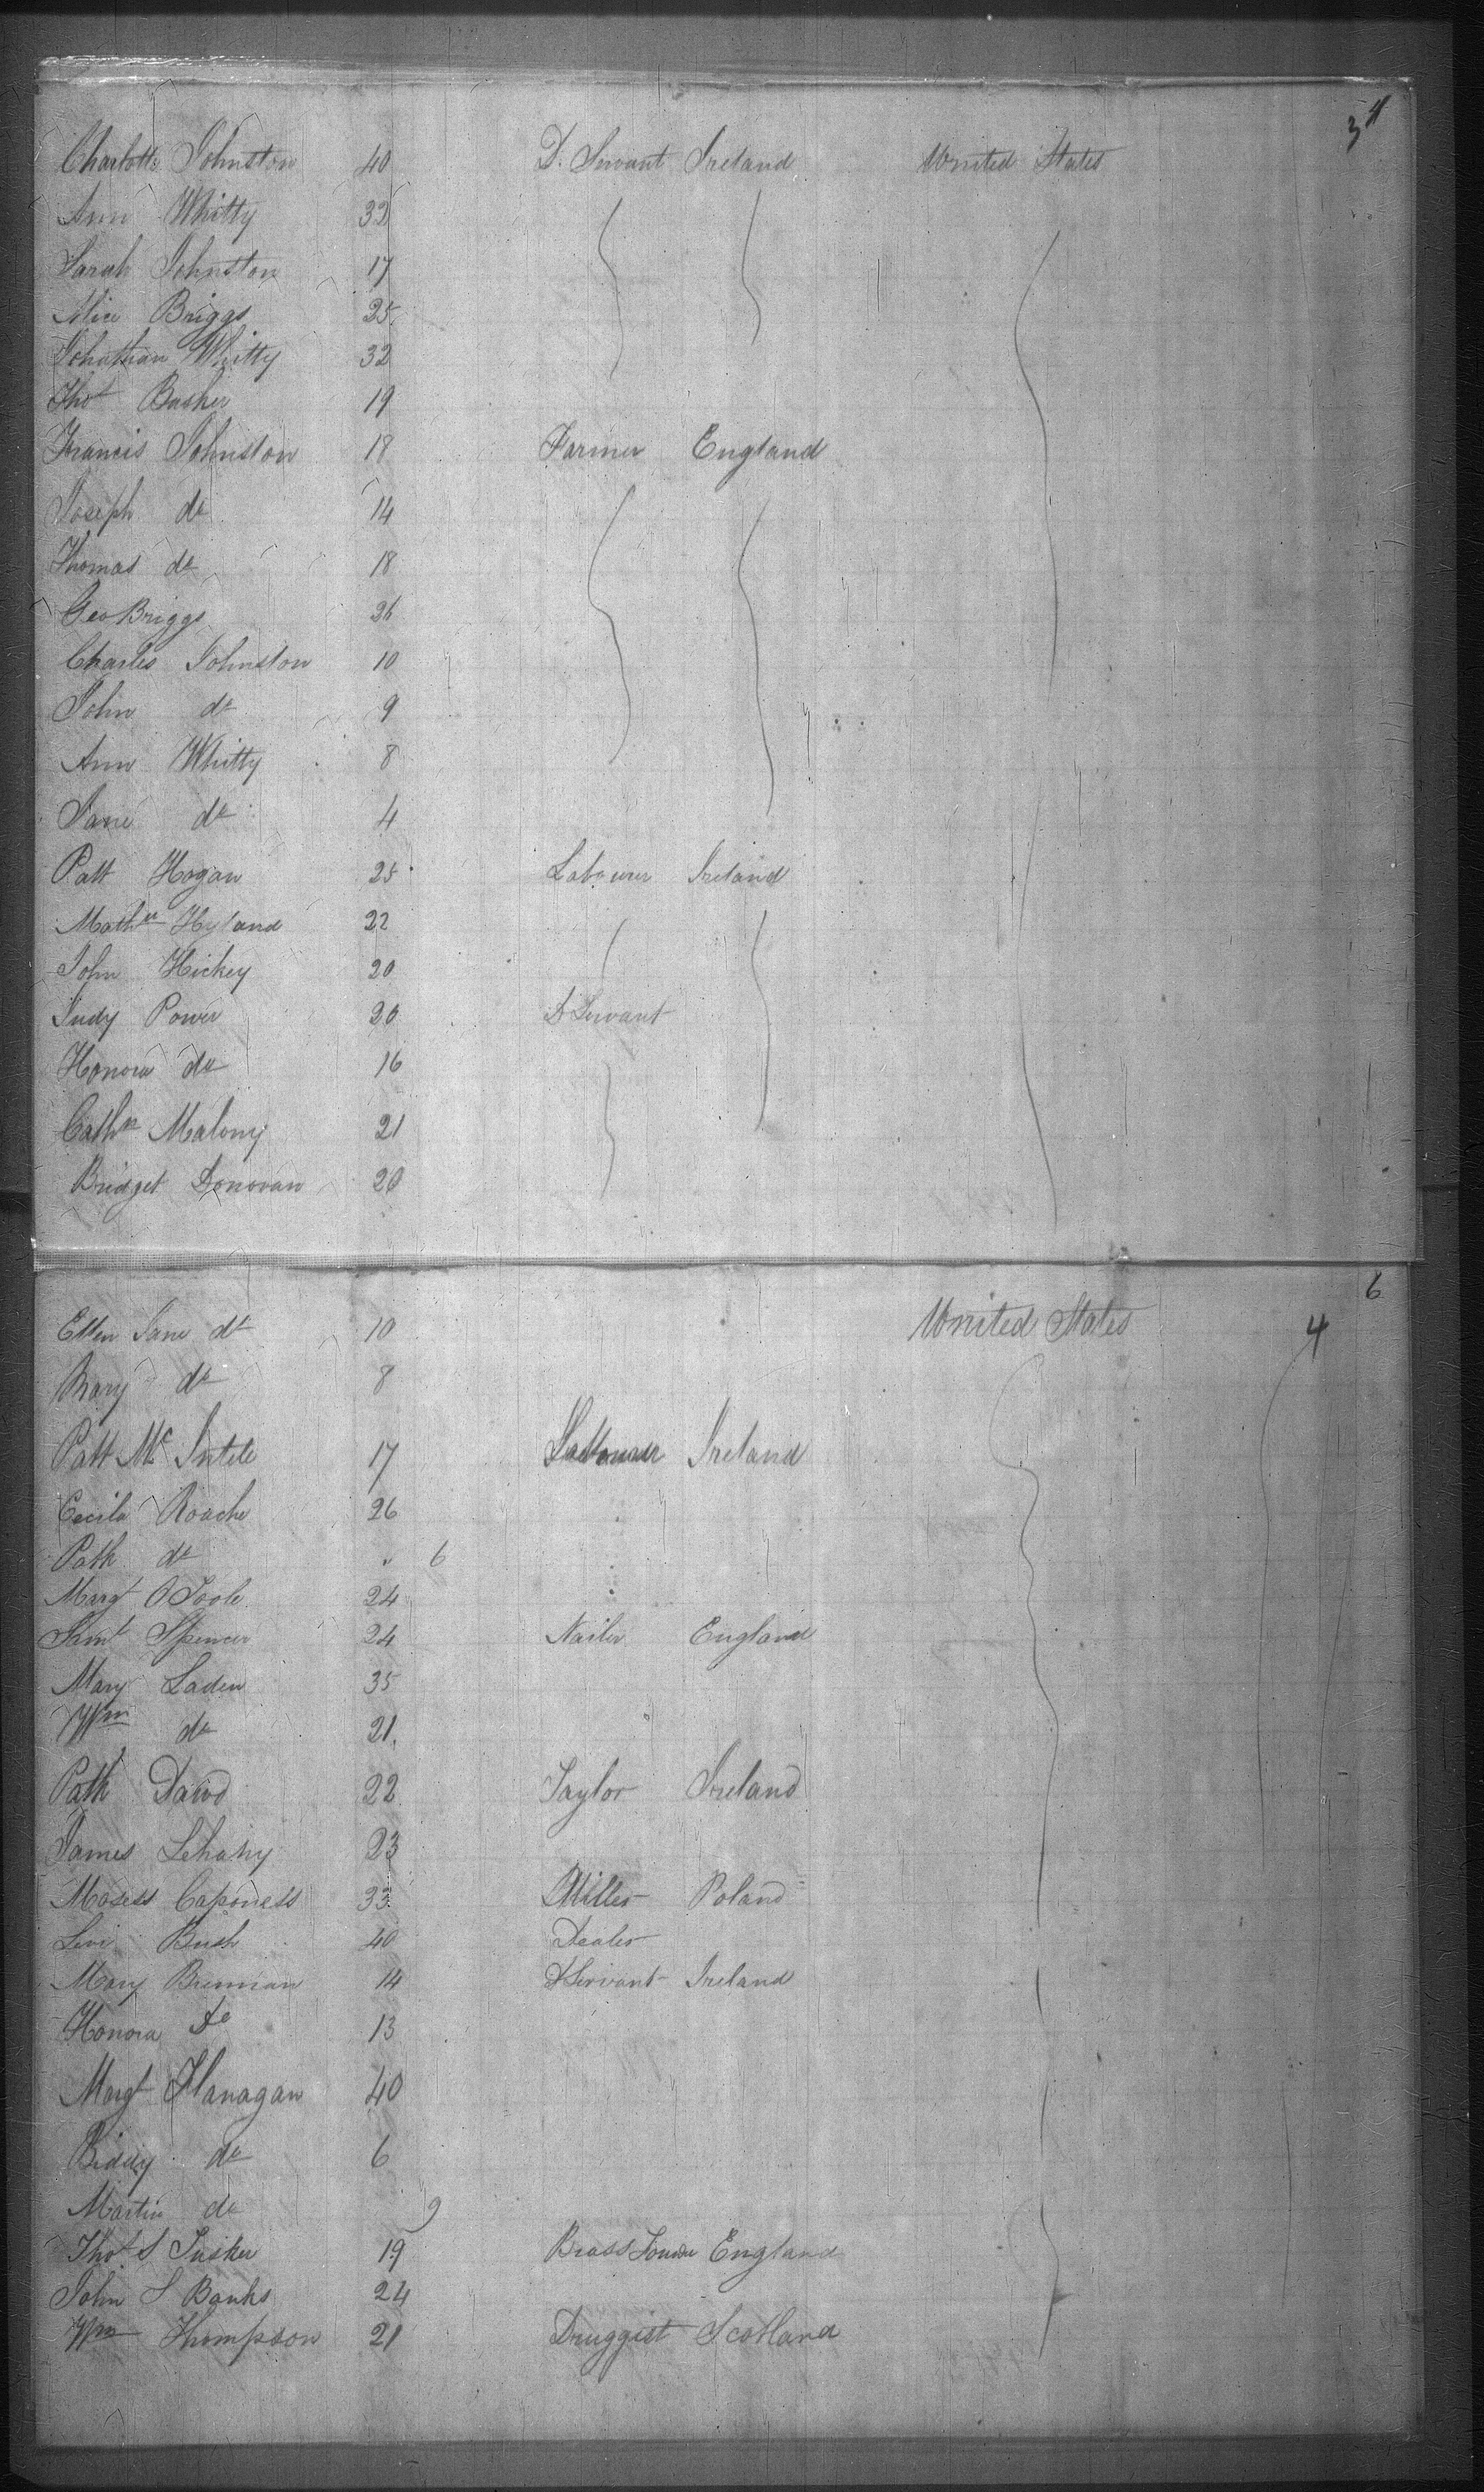 34
Charlotte Johnston 40 D. Servant Ireland United States
Ann Whitty 32
Sarah Johnston 17
Alice Briggs 25
Johathan Whitty 32
Thos Busher 19
Francis Johnston 18 Farmer England
Joseph do 14
Thomas do 18
Geo Briggs 26
Charles Johnston 10
John do 9
Ann Whitty 8
Jane do 4
Patt Hogan 25 Labourer Ireland
Hyland 22
John Hickey 20
Judy Power 20 D Servant
Honora do 16
Cathn Malony 21
Bridget Donovan 20
6
Ellen Jane do 10 United States 4
do 8
Patt Mc 17 Labourer Ireland
Cecila Roache 26
Patk do " 6
Margt O Toole 24
Saml Spencer 24 Nailer England
Mary Laden 35
Wm do 21
Patk David 22 Taylor Ireland
James Lehahy 23
Mosess Caponess 33 Miller Poland
Levi Bush 40 Dealer
Mary Brennan 14 D Servant Ireland
Honora Do 13
Margt Flanagan 40
Biddy do 6
Martin do 9
Thos S Tusker 19 Brass England
John S Banks 24
Wm Thompson 21 Druggist Scotland